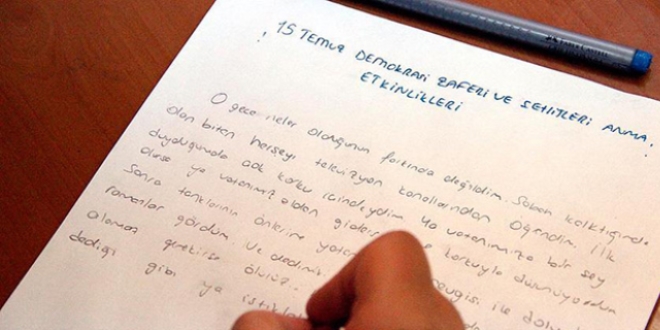 15 TEMUZ DEMOKRASİ ZAFERİ VE ŞEHİTLERİ ANMA
ETKİNLİKLERİ
O gece neler olduğunun farkında değildim. Sabah kalktığımda
olan biten herşeyi televizyon kanallarından öğrendim. İlk
duyduğumda çok korku içindeydim ya vatanımıza bir şey
olursa ya vatanımız elden giderse korkuyla düşünüyordum
Sonra tankların önlerine yatan
romanlar gördüm. Ve dedim ile
olamam gerekirse ölürüz.
dediği gibi ya istiklal